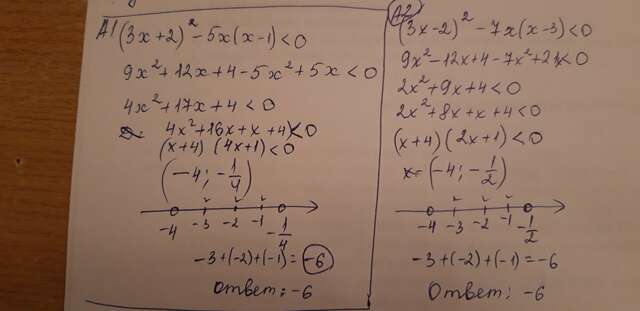 A1 (3x+2)² - 5x(x-1) < 0
9x² + 12x + 4 - 5x² + 5x < 0
4x² + 17x + 4 < 0
4x² + 16x + x + 4 < 0
(x+4) (4x+1) < 0
(-4; -1/4)
-4 -3 -2 -1 -1/4
-3 + (-2) + (-1) = -6
Ответ: -6
A2 (3x-2)² - 7x(x-3) < 0
9x² - 12x + 4 - 7x² + 21x < 0
2x² + 9x + 4 < 0
2x² + 8x + x + 4 < 0
(x+4) (2x+1) < 0
x = (-4; -1/2)
-4 -3 -2 -1 -1/2
-3 + (-2) + (-1) = -6
Ответ: -6